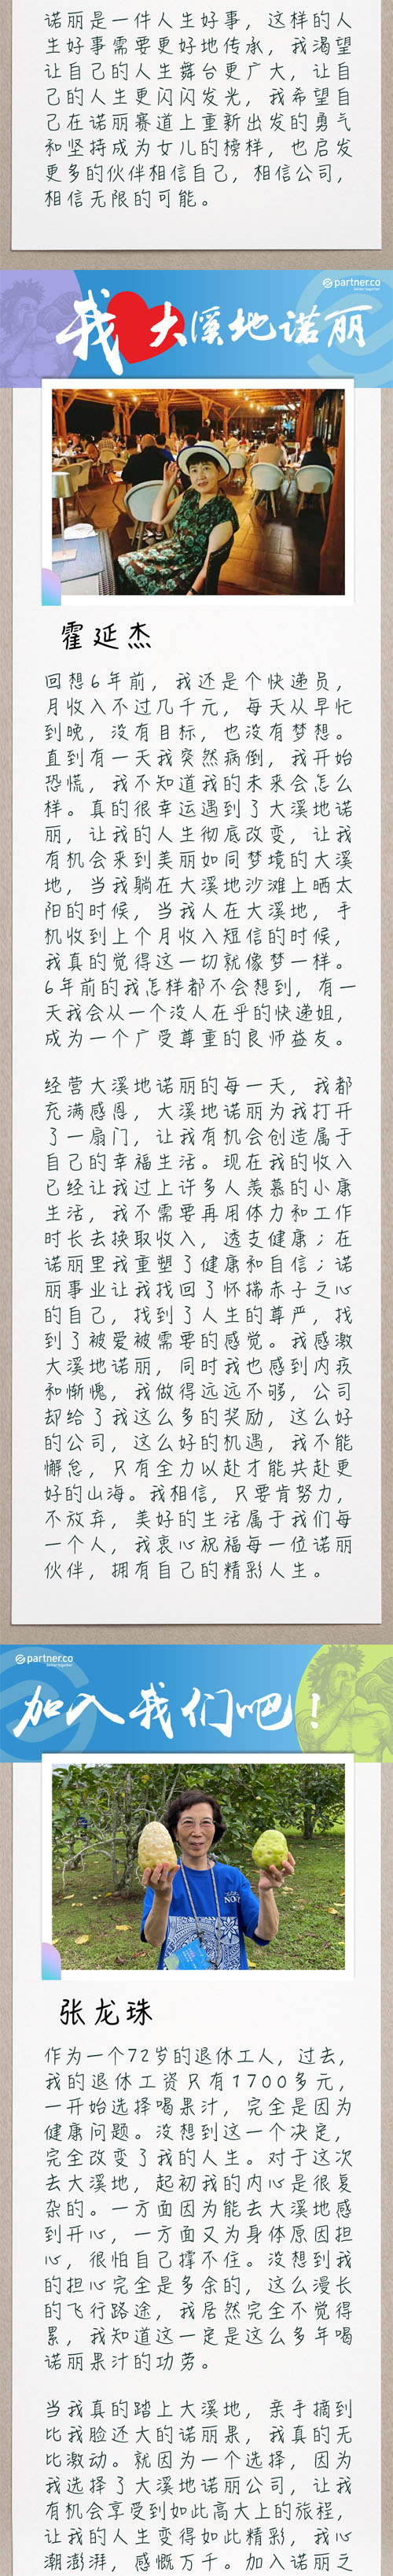 诺丽是一件人生好事，这样的人
生好事需要更好地传承，我渴望
让自己的人生舞台更广大，让自
己的人生更闪闪发光，我希望自
己在诺丽赛道上重新出发的勇气
和坚持成为女儿的榜样，也启发
更多的伙伴相信自己，相信公司，
相信无限的可能。
partner.co
better together
我 大溪地诺丽
霍延杰
回想6年前，我还是个快递员，
月收入不过几千元，每天从早忙
到晚，没有目标，也没有梦想。
直到有一天我突然病倒，我开始
恐慌，我不知道我的未来会怎么
样。真的很幸运遇到了大溪地诺
丽，让我的人生彻底改变，让我
有机会来到美丽如同梦境的大溪
地，当我躺在大溪地沙滩上晒太
阳的时候，当我人在大溪地，手
机收到上个月收入短信的时候，
我真的觉得这一切就像梦一样。
6年前的我怎样都不会想到，有一
天我会从一个没人在乎的快递姐，
成为一个广受尊重的良师益友。
经营大溪地诺丽的每一天，我都
充满感恩，大溪地诺丽为我打开
了一扇门，让我有机会创造属于
自己的幸福生活。现在我的收入
已经让我过上许多人羡慕的小康
生活，我不需要再用体力和工作
时长去换取收入，透支健康；在
诺丽里我重塑了健康和自信；诺
丽事业让我找回了怀揣赤子之心
的自己，找到了人生的尊严，找
到了被爱被需要的感觉。我感激
大溪地诺丽，同时我也感到内疚
和惭愧，我做得远远不够，公司
却给了我这么多的奖励，这么好
的公司，这么好的机遇，我不能
懈怠，只有全力以赴才能共赴更
好的山海。我相信，只要肯努力，
不放弃，美好的生活属于我们每
一个人，我衷心祝福每一位诺丽
伙伴，拥有自己的精彩人生。
partner.co
better together
加入我们吧！
张龙珠
作为一个72岁的退休工人，过去，
我的退休工资只有1700多元，
一开始选择喝果汁，完全是因为
健康问题。没想到这一个决定，
完全改变了我的人生。对于这次
去大溪地，起初我的内心是很复
杂的。一方面因为能去大溪地感
到开心，一方面又为身体原因担
心，很怕自己撑不住。没想到我
的担心完全是多余的，这么漫长
的飞行路途，我居然完全不觉得
累，我知道这一定是这么多年喝
诺丽果汁的功劳。
当我真的踏上大溪地，亲手摘到
比我脸还大的诺丽果，我真的无
比激动。就因为一个选择，因为
我选择了大溪地诺丽公司，让我
有机会享受到如此高大上的旅程，
让我的人生变得如此精彩，我心
潮澎湃，感慨万千。加入诺丽之